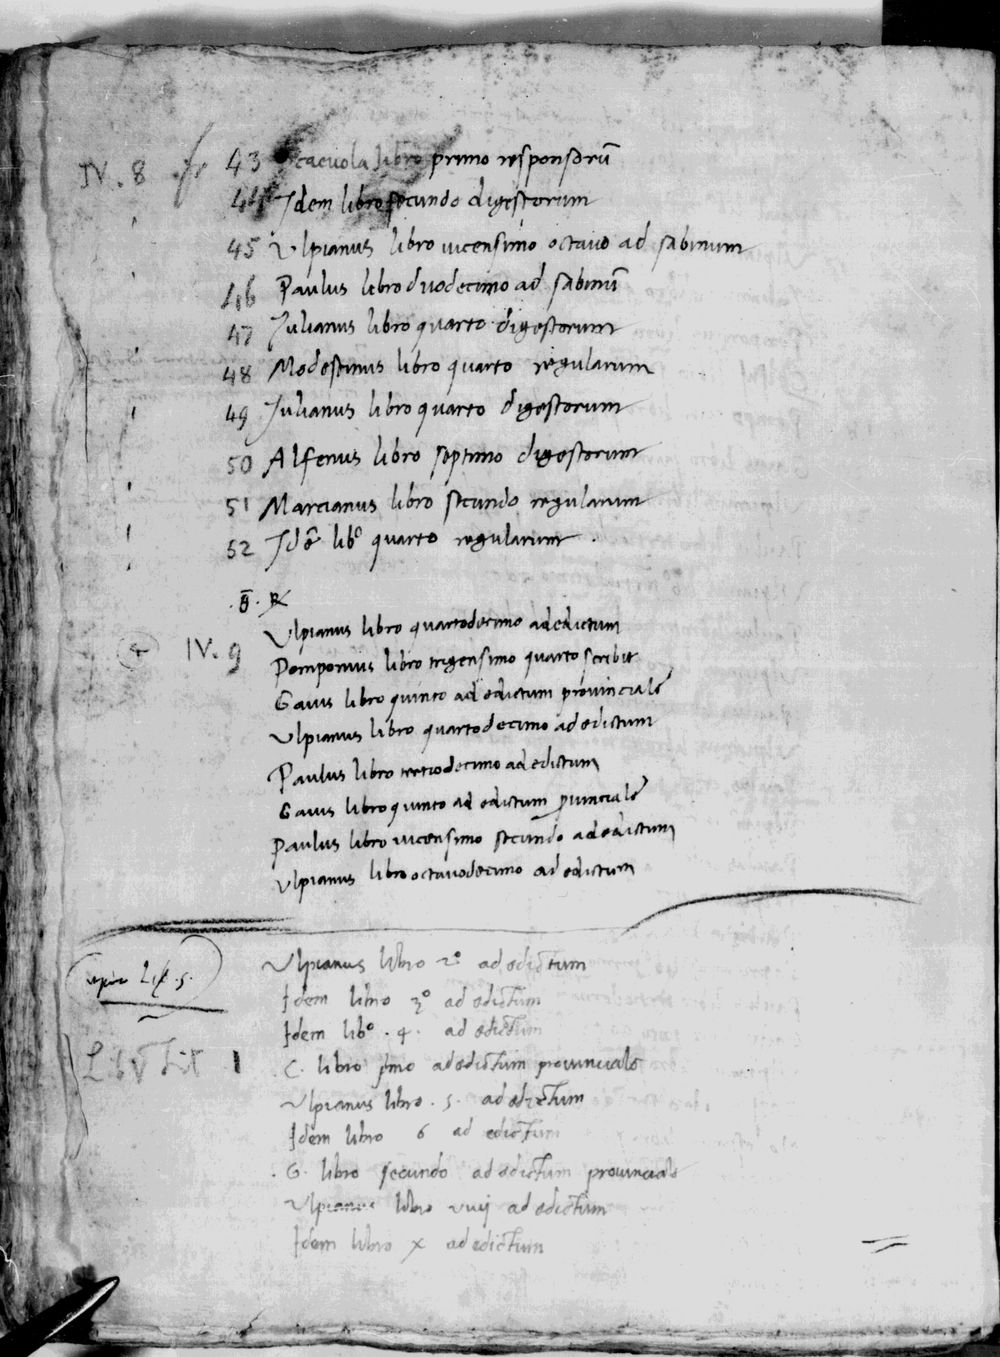 IV. 8 fr 43 Scaevola libro primo responsorū
44 Idem libro secundo digestorum
45 Ulpianus libro vicensimo octavo ad sabinum
46 Paulus libro duodecimo ad sabinū
47 Iulianus libro quarto digestorum
48 Modestinus libro quarto regularum
49 Iulianus libro quarto digestorum
50 Alfenus libro septimo digestorum
51 Marcianus libro secundo regularum
52 Idē libº quarto regularum
Ulpianus libro quartodecimo ad edictum
IV. 9 Pomponius libro trigensimo quarto scribit
Gaius libro quinto ad edictum provinciale
Ulpianus libro quartodecimo ad edictum
Paulus libro tertiodecimo ad edictum
Gaius libro quinto ad edictum pvinciale
Paulus libro vicensimo secundo ad edictum
Ulpianus libro octavodecimo ad edictum
Ulpianus libro 2º ad edictum
Idem libro 3º ad edictum
Idem libº . 4 . ad edictum
Lib V tit 1 G. libro pmo ad edictum provinciale
Ulpianus libro . 5 . ad edictum
Idem libro 6 ad edictum
. G. libro secundo ad edictum provinciale
Ulpianus libro viiij ad edictum
Idem libro x ad edictum